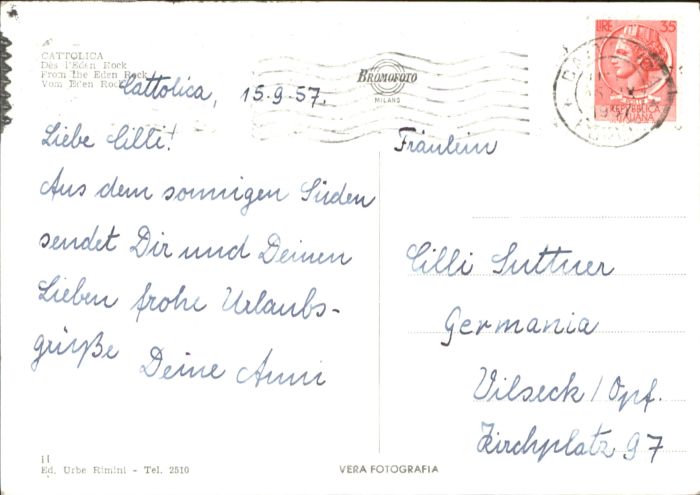 CATTOLICA
Dès l'Eden Rock
From the Eden Rock
Vom Eden Rock
Cattolica, 15.9.57.
Liebe Cilli!
Aus dem sonnigen Süden
sendet Dir und Deinen
Lieben frohe Urlaubs-
grüße Deine Anni
11
Ed. Urbe Rimini - Tel. 2510
BROMOFOTO
MILANO
VERA FOTOGRAFIA
LIRE 35
REPUBBLICA
ITALIANA
Fräulein
Cilli Suttner
Germania
Vilseck / Opf.
Kirchplatz 97